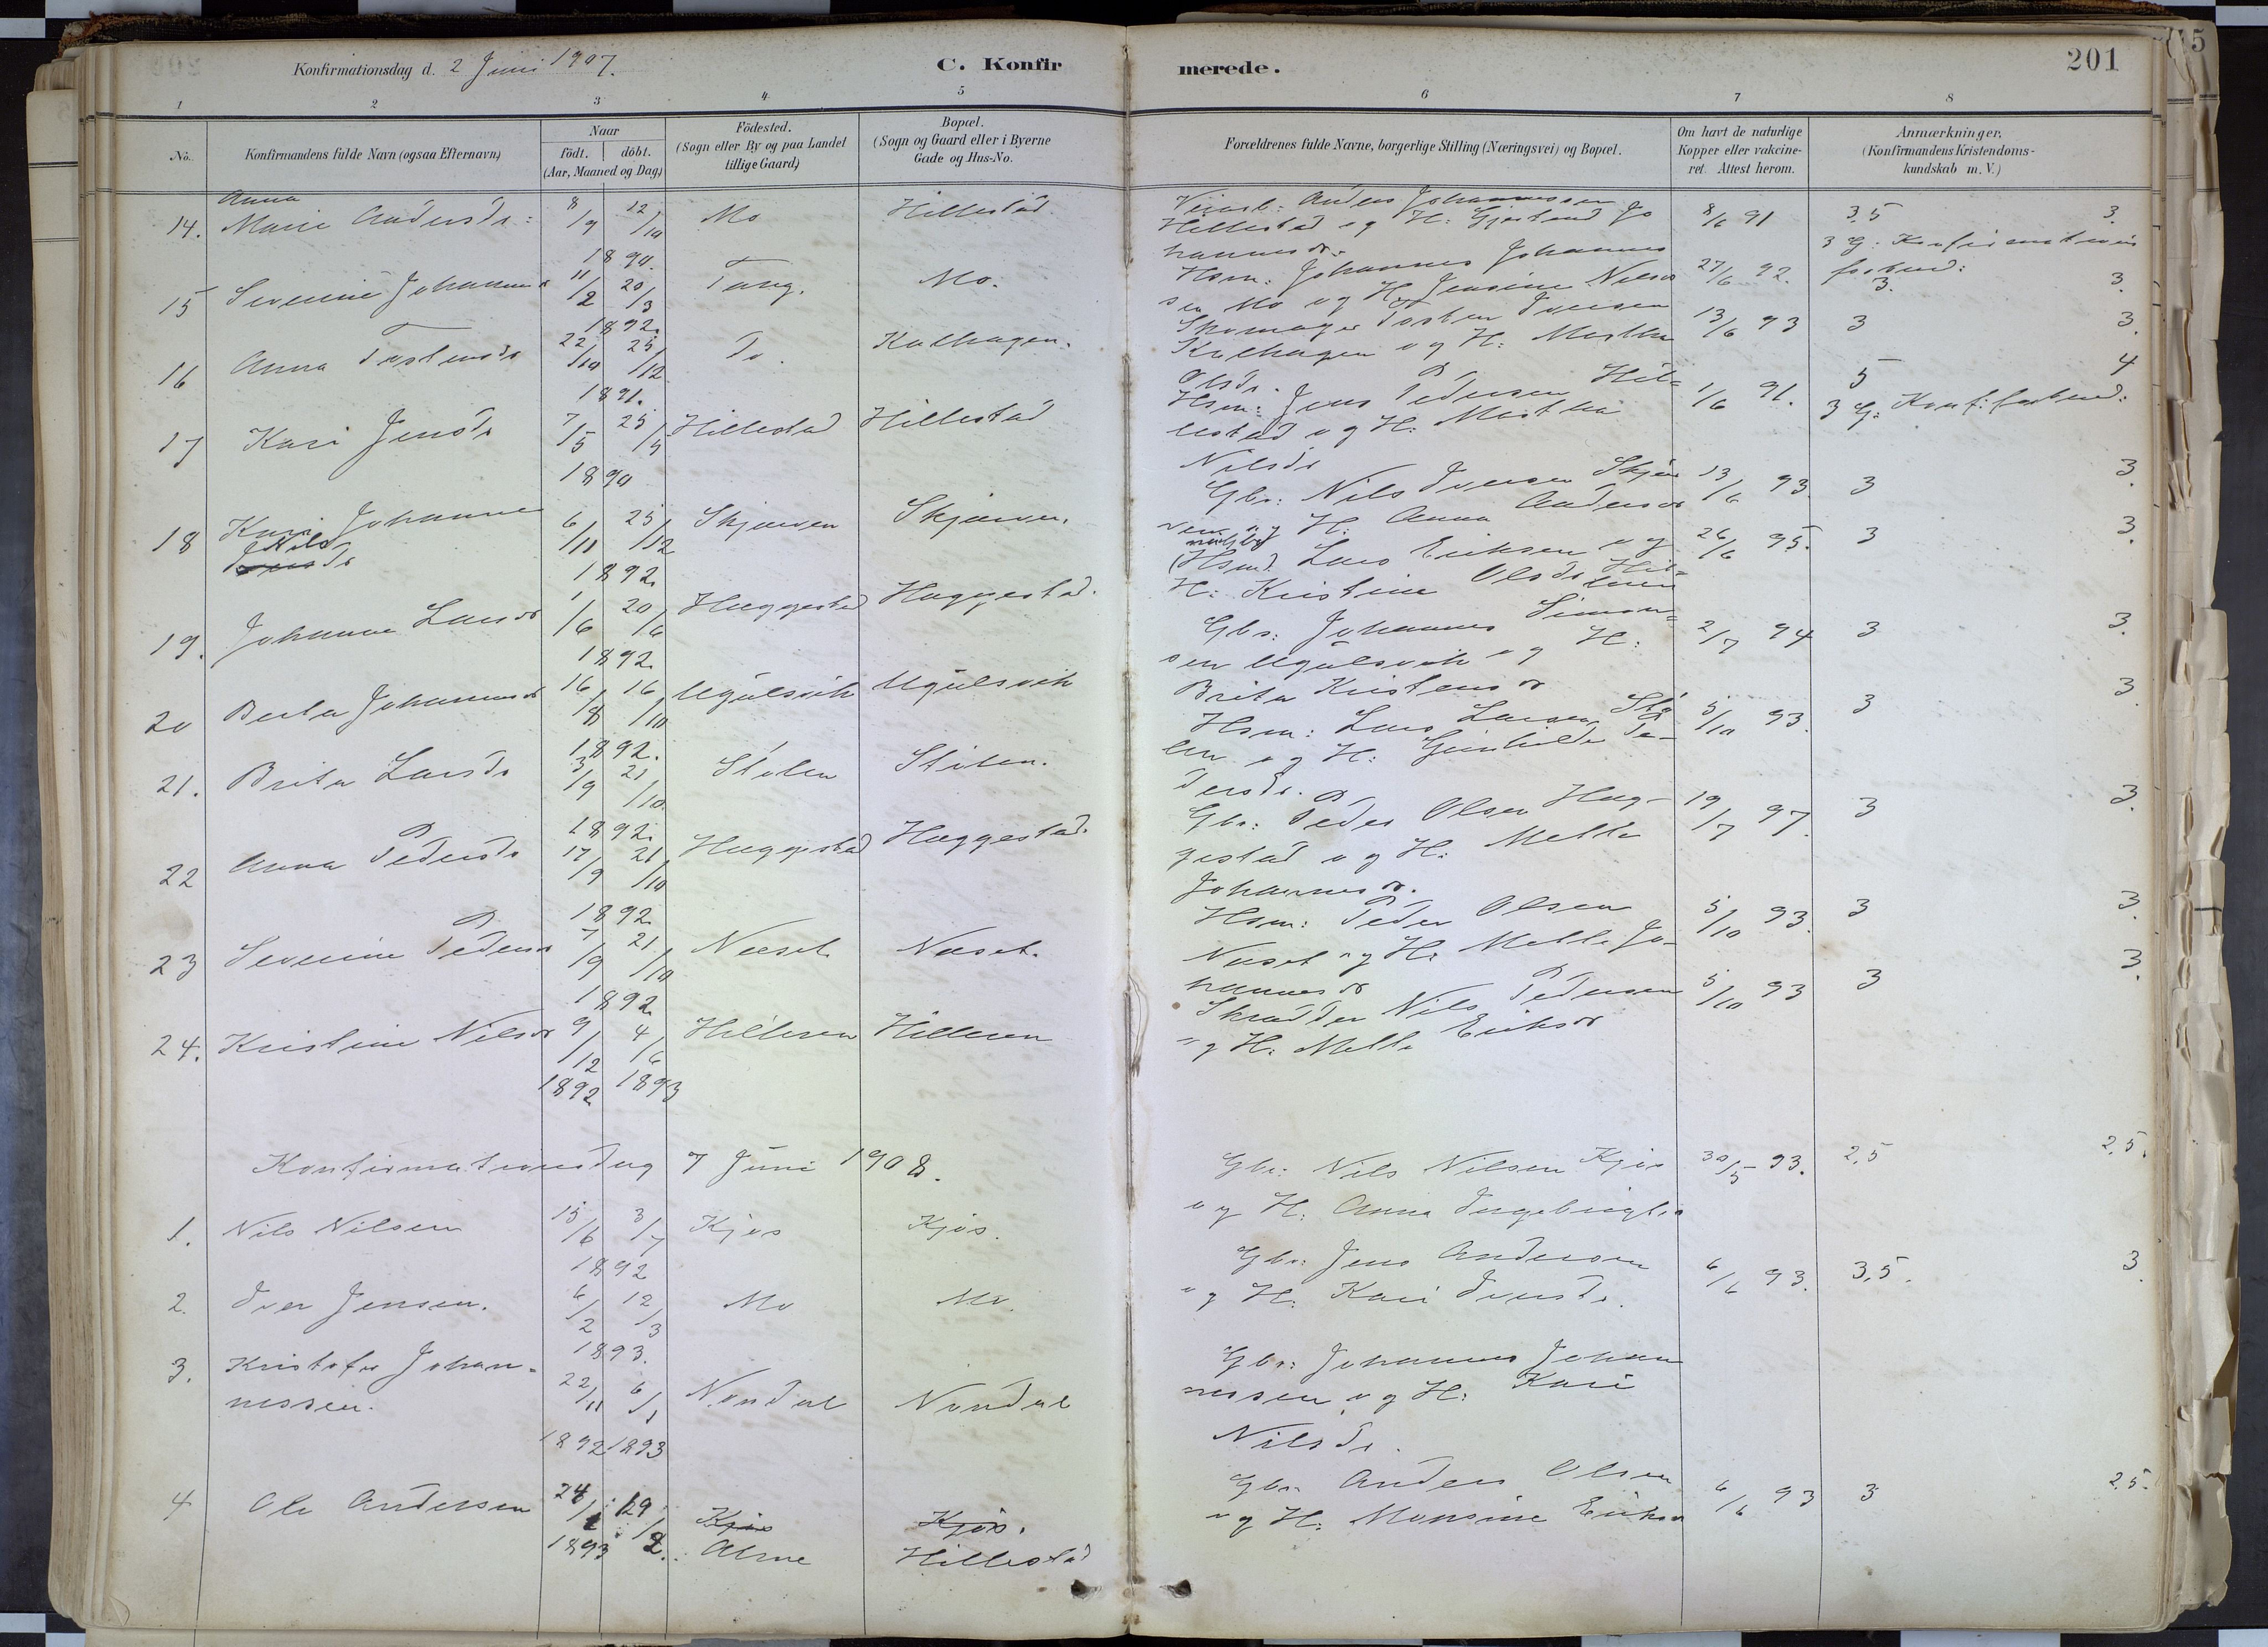 Konfirmationsdag d. 2 Juni 1907.
C. Konfirmerede.
201
1 2 3 4 5 6 7 8
No.
Konfirmandens fulde Navn (ogsaa Efternavn)
Naar
födt. döbt.
(Aar, Maaned og Dag)
Födested.
(Sogn eller By og paa Landet
tillige Gaard)
Bopæl.
(Sogn og Gaard eller i Byerne
Gade og Hus-No.
Forældrenes fulde Navne, borgerlige Stilling (Næringsvei) og Bopæl.
Om havt de naturlige
Kopper eller vakcine-
ret. Attest herom.
Anmærkninger,
(Konfirmandens Kristendoms-
kundskab m. V.)
Anna
14. Marie Andersdr: 8/9 12/10 Mo Hillestad
1890.
Anders Johannessen
Hillestad og H: Gjertrud Jo
hannesdr. 8/6 91 3,5 3.
3 G: Konfirmations
forbud:
15 Severine Johannesdr 11/2 20/3 Tang. Mo.
1892.
Hsm: Johannes Johannes
sen Mo og H. Jensine Nilsdr 27/6 92. 3. 3.
16 Anna Tostensdr 22/10 25/12 Do. Kalhagen.
1891.
Skomager Tosten Iversen
Kalhagen og H: Martha
Olsdr. 13/6 93 3 3.
17 Kari Jensdr 7/5 25/5 Hillestad Hillestad
1890
Hsm: Jens Pedersen Hil=
lestad og H: Martha
Nilsdr 1/6 91. 5 4
3 G: Konf: forbud:
18 Kari Johanne
Nilsdr 6/11 25/12 Skjerven Skjerven.
1892.
Gbr: Nils Iversen Skjer
ven og H: Anna Andersdr 13/6 93. 3 3.
19. Johanne Larsdr 1/6 20/6 Haggestad Haggestad.
1892.
(Hsmd. Lars Eriksen og
H: Kristine Olsdr 26/6 95. 3 3.
20 Berta Johannesdr 16/8 16/10 Ugulsvik Ugulsvik
1892.
Gbr: Johannes Simon=
sen Ugulsvik og H:
Brita Kristensdr 2/7 94 3 3.
21. Brita Larsdr 3/9 21/10 Stølen Stölen.
1892.
Hsm: Lars Larsen Stø
len og H: Gunhilde Pe-
dersdr. 5/10 93. 3 3
22 Anna Pedersdr 17/9 21/10 Haggestad Haggestad.
1892.
Gbr: Peder Olsen Hag-
gestad og H: Mette
Johannesdr. 19/7 97. 3 3.
23 Severine Pedersdr 7/9 21/10 Næset. Næset.
1892.
Hsm: Peder Olsen
Næset og H: Mette Jo-
hannesdr 5/10 93. 3 3.
24. Kristine Nilsdr 9/12 4/6 Hilleren Hilleren
1892 1893
Skrædder Nils Pedersen
og H: Mette Eriksdr 5/10 93 3 3.
Konfirmationsdag 7 Juni 1908.
1. Nils Nilsen 15/6 3/7 Kjøs Kjøs.
1892
Gbr: Nils Nilsen Kjøs
og H: Anna Ingebrigtsdr 30/5 93. 2,5 2,5.
2. Iver Jensen. 6/2 12/3 Mo Mo.
1893.
Gbr: Jens Andersen
og H: Kari Iversdr. 6/6 93. 3,5. 3.
3. Kristofer Johan=
nessen. 22/11 6/1 Nondal Nondal
1892 1893
Gbr: Johannes Johan
nessen og H: Kari
Nilsdr.
4 Ole Andersen 24/1 19/2. Kjøs Kjøs.
1893 Alme Hillestad
Gbr. Anders Olsen
og H: Monsine Eriksdr 6/6 93 3 2,5.